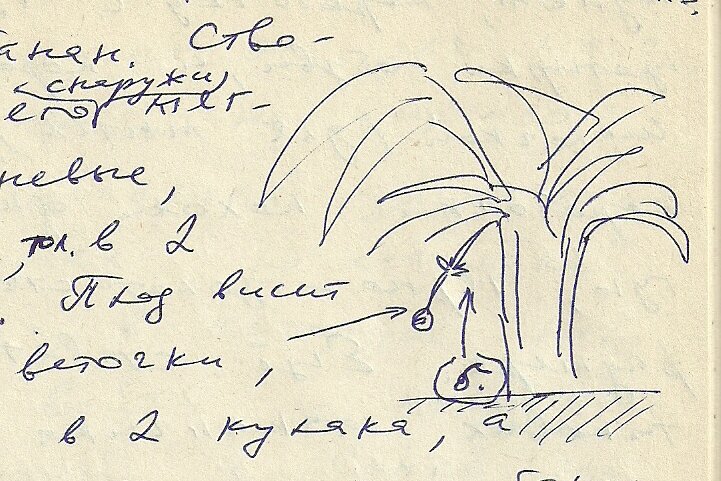 анан. Ство-
снаружи
его клет-
невые,
, тол. в 2
Плод висит
веточки,
в 2 кулака,
б.
а